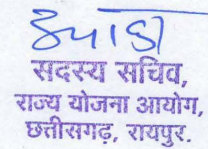 सदस्य सचिव,
राज्य योजना आयोग,
छत्तीसगढ़, रायपुर.